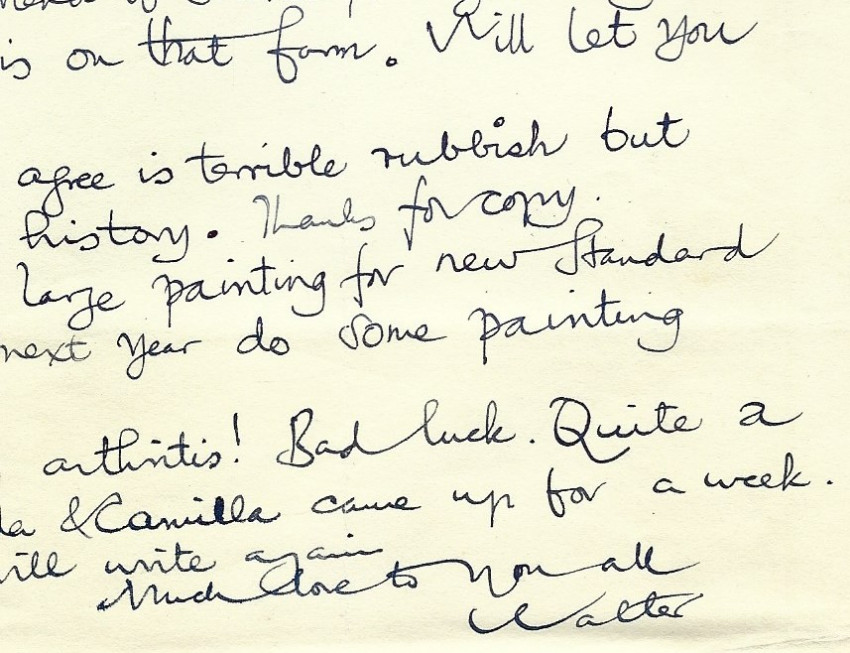 is on that farm. Will let you
agree is terrible rubbish but
history. Thanks for copy.
large painting for new Standard
next year do some painting
arthritis! Bad luck. Quite a
& Camilla came up for a week.
will write again
Much love to you all
Walter